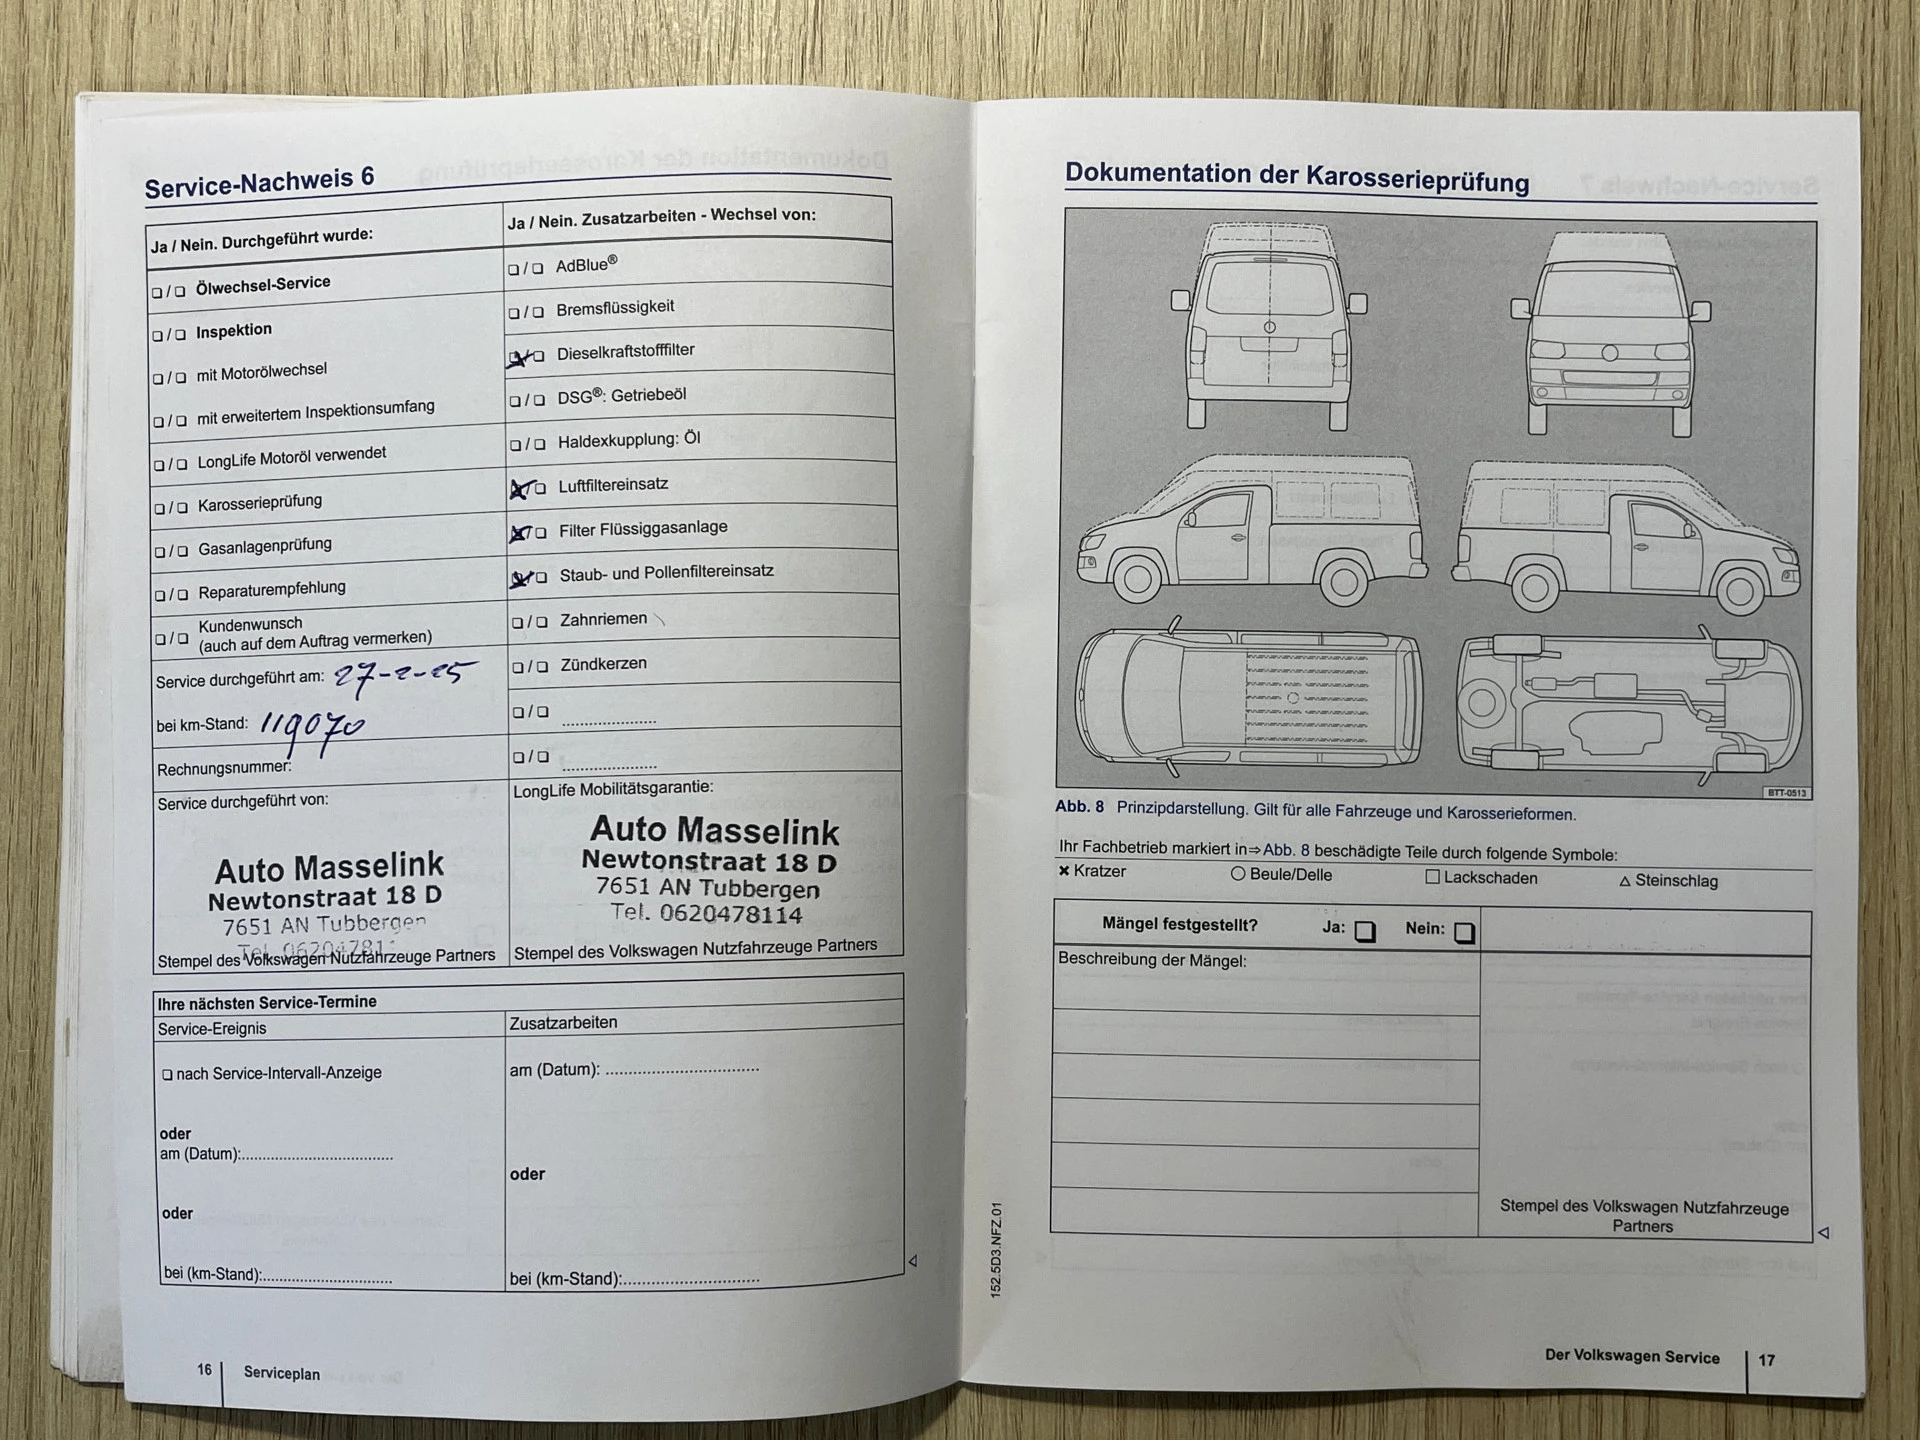 Service-Nachweis 6
Ja / Nein. Durchgeführt wurde:
❏ / ❏ Ölwechsel-Service
❏ / ❏ Inspektion
❏ / ❏ mit Motorölwechsel
❏ / ❏ mit erweitertem Inspektionsumfang
❏ / ❏ LongLife Motoröl verwendet
❏ / ❏ Karosserieprüfung
❏ / ❏ Gasanlagenprüfung
❏ / ❏ Reparaturempfehlung
❏ / ❏ Kundenwunsch
(auch auf dem Auftrag vermerken)
Service durchgeführt am: 27-2-25
bei km-Stand: 119070
Rechnungsnummer:
Service durchgeführt von:
Auto Masselink
Newtonstraat 18 D
7651 AN Tubbergen
Stempel des Volkswagen Nutzfahrzeuge Partners
Ja / Nein. Zusatzarbeiten - Wechsel von:
❏ / ❏ AdBlue®
❏ / ❏ Bremsflüssigkeit
☒ / ❏ Dieselkraftstofffilter
❏ / ❏ DSG®: Getriebeöl
❏ / ❏ Haldexkupplung: Öl
☒ / ❏ Luftfiltereinsatz
☒ / ❏ Filter Flüssiggasanlage
☒ / ❏ Staub- und Pollenfiltereinsatz
❏ / ❏ Zahnriemen
❏ / ❏ Zündkerzen
❏ / ❏ ......................
❏ / ❏ ......................
LongLife Mobilitätsgarantie:
Auto Masselink
Newtonstraat 18 D
7651 AN Tubbergen
Tel. 0620478114
Stempel des Volkswagen Nutzfahrzeuge Partners
Ihre nächsten Service-Termine
Service-Ereignis
❏ nach Service-Intervall-Anzeige
oder
am (Datum):....................................
oder
bei (km-Stand):...............................
Zusatzarbeiten
am (Datum): ....................................
oder
bei (km-Stand):................................
16 Serviceplan
Dokumentation der Karosserieprüfung
BTT-0513
Abb. 8 Prinzipdarstellung. Gilt für alle Fahrzeuge und Karosserieformen.
Ihr Fachbetrieb markiert in⇒Abb. 8 beschädigte Teile durch folgende Symbole:
× Kratzer ○ Beule/Delle □ Lackschaden △ Steinschlag
Mängel festgestellt? Ja: ❏ Nein: ❏
Beschreibung der Mängel:
Stempel des Volkswagen Nutzfahrzeuge
Partners
152.5D3.NFZ.01
Der Volkswagen Service 17